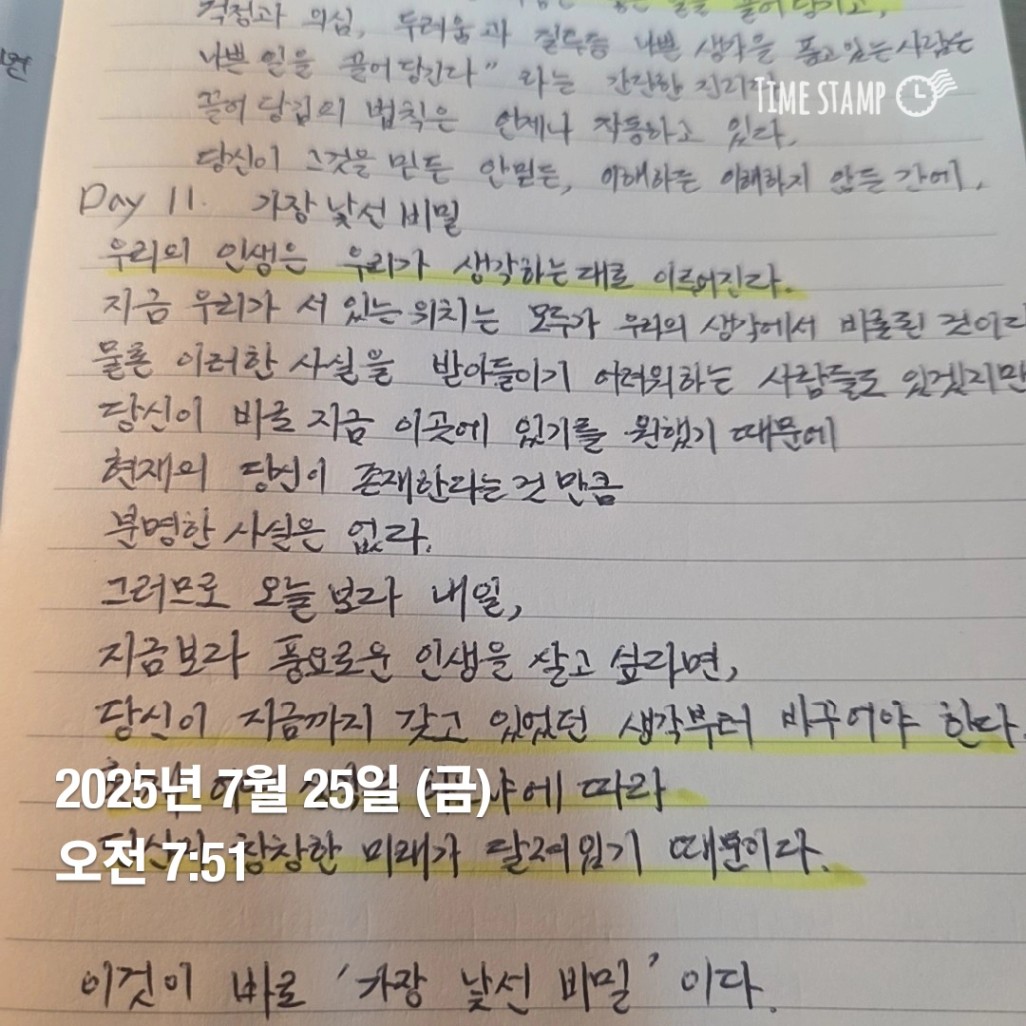 걱정과 의심, 두려움과 질투등 나쁜 생각을 품고있는 사람은
나쁜 일을 끌어당긴다" 라는 간단한 진리
TIME STAMP
끌어당김의 법칙은 언제나 작동하고 있다.
당신이 그것을 믿든 안믿든, 이해하든 이해하지 않든 간에.
Day 11. 가장 낯선 비밀
우리의 인생은 우리가 생각하는대로 이루어진다.
지금 우리가 서 있는 위치는 모두가 우리의 생각에서 비롯된 것이
물론 이러한 사실을 받아들이기 어려워하는 사람들도 있겠지만
당신이 바로 지금 이곳에 있기를 원했기 때문에
현재의 당신이 존재한다는것 만큼
분명한 사실은 없다.
그러므로 오늘보다 내일,
지금보다 풍요로운 인생을 살고 싶다면,
당신이 지금까지 갖고 있었던 생각부터 바꾸어야 한다.
에 따라
2025년 7월 25일 (금)
창창한 미래가 달려있기 때문이다.
오전 7:51
이것이 바로 '가장 낯선 비밀' 이다.